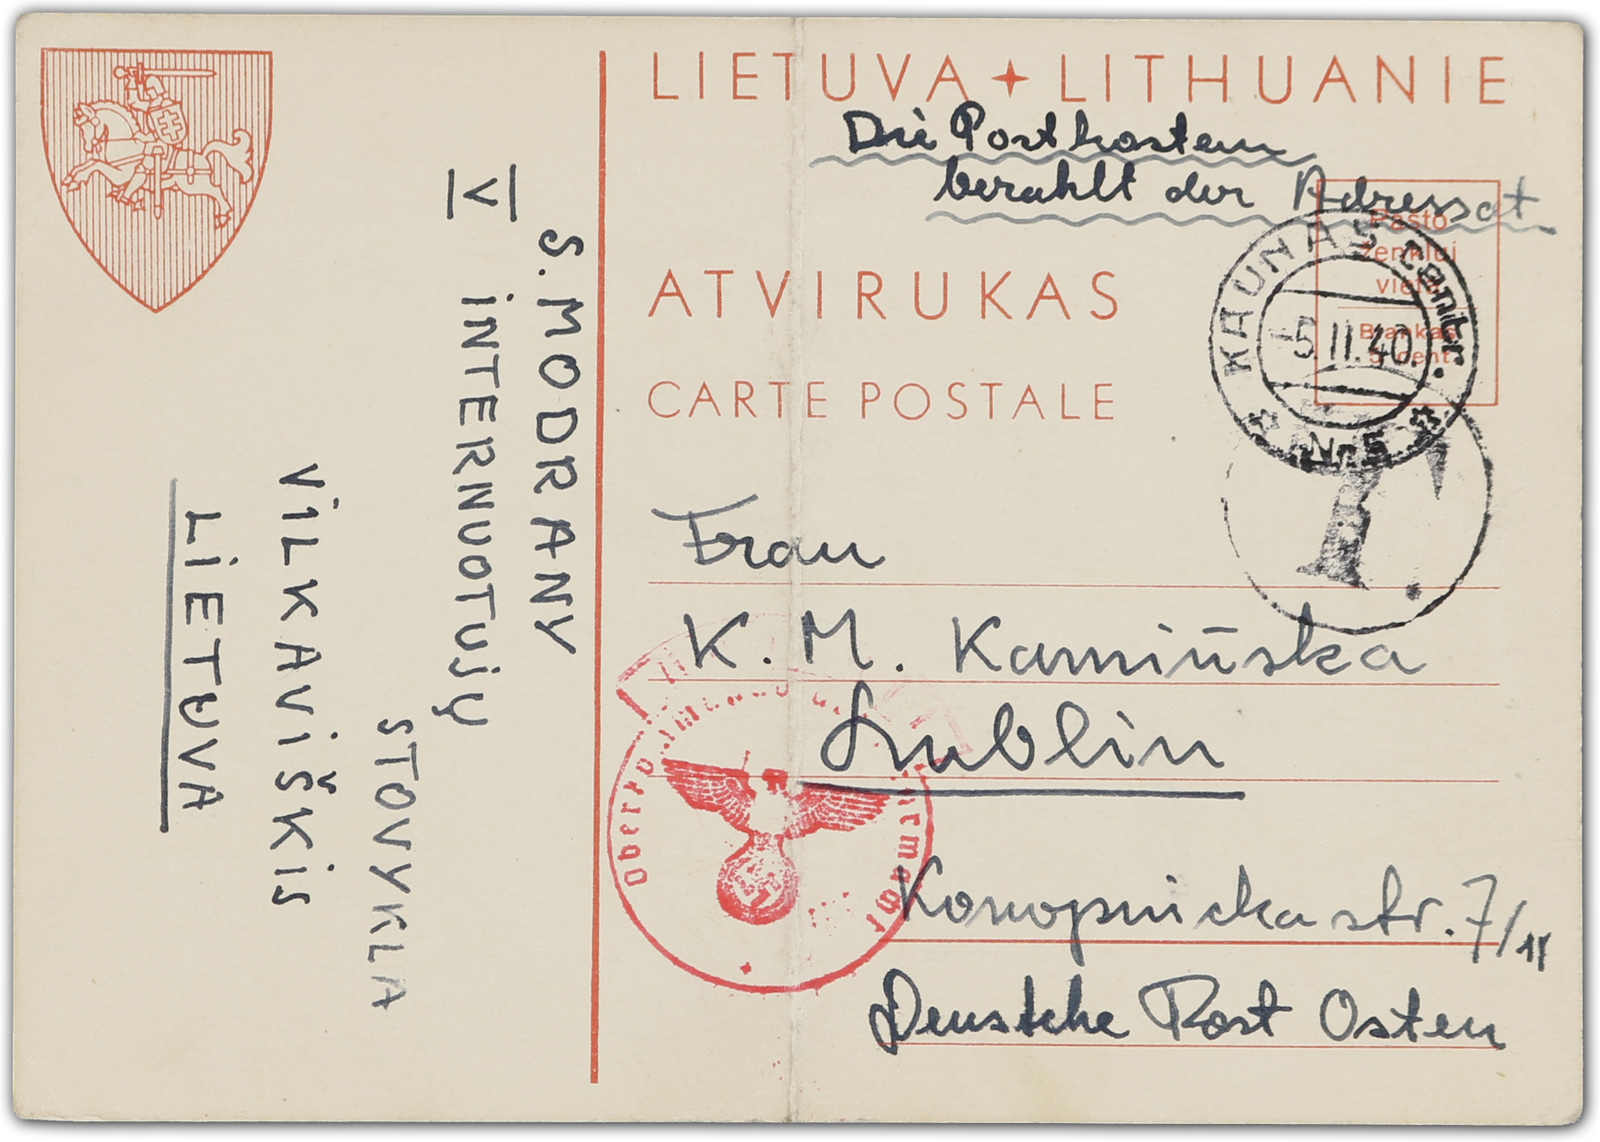 LIETUVA + LITHUANIE
Die Postkosten
bezahlt der Adressat
Pašto
ženklui
vieta
Blankas
5 cent.
KAUNAS Centr.
-5.II.40.
Nr 5
T.
ATVIRUKAS
CARTE POSTALE
Frau
K. M. Kamińska
Lublin
Konopnicka str. 7/
Deutsche Post Osten
Oberko
S. MODRANY
V INTERNUOTUJŲ
STOVYKLA
VILKAVIŠKIS
LIETUVA